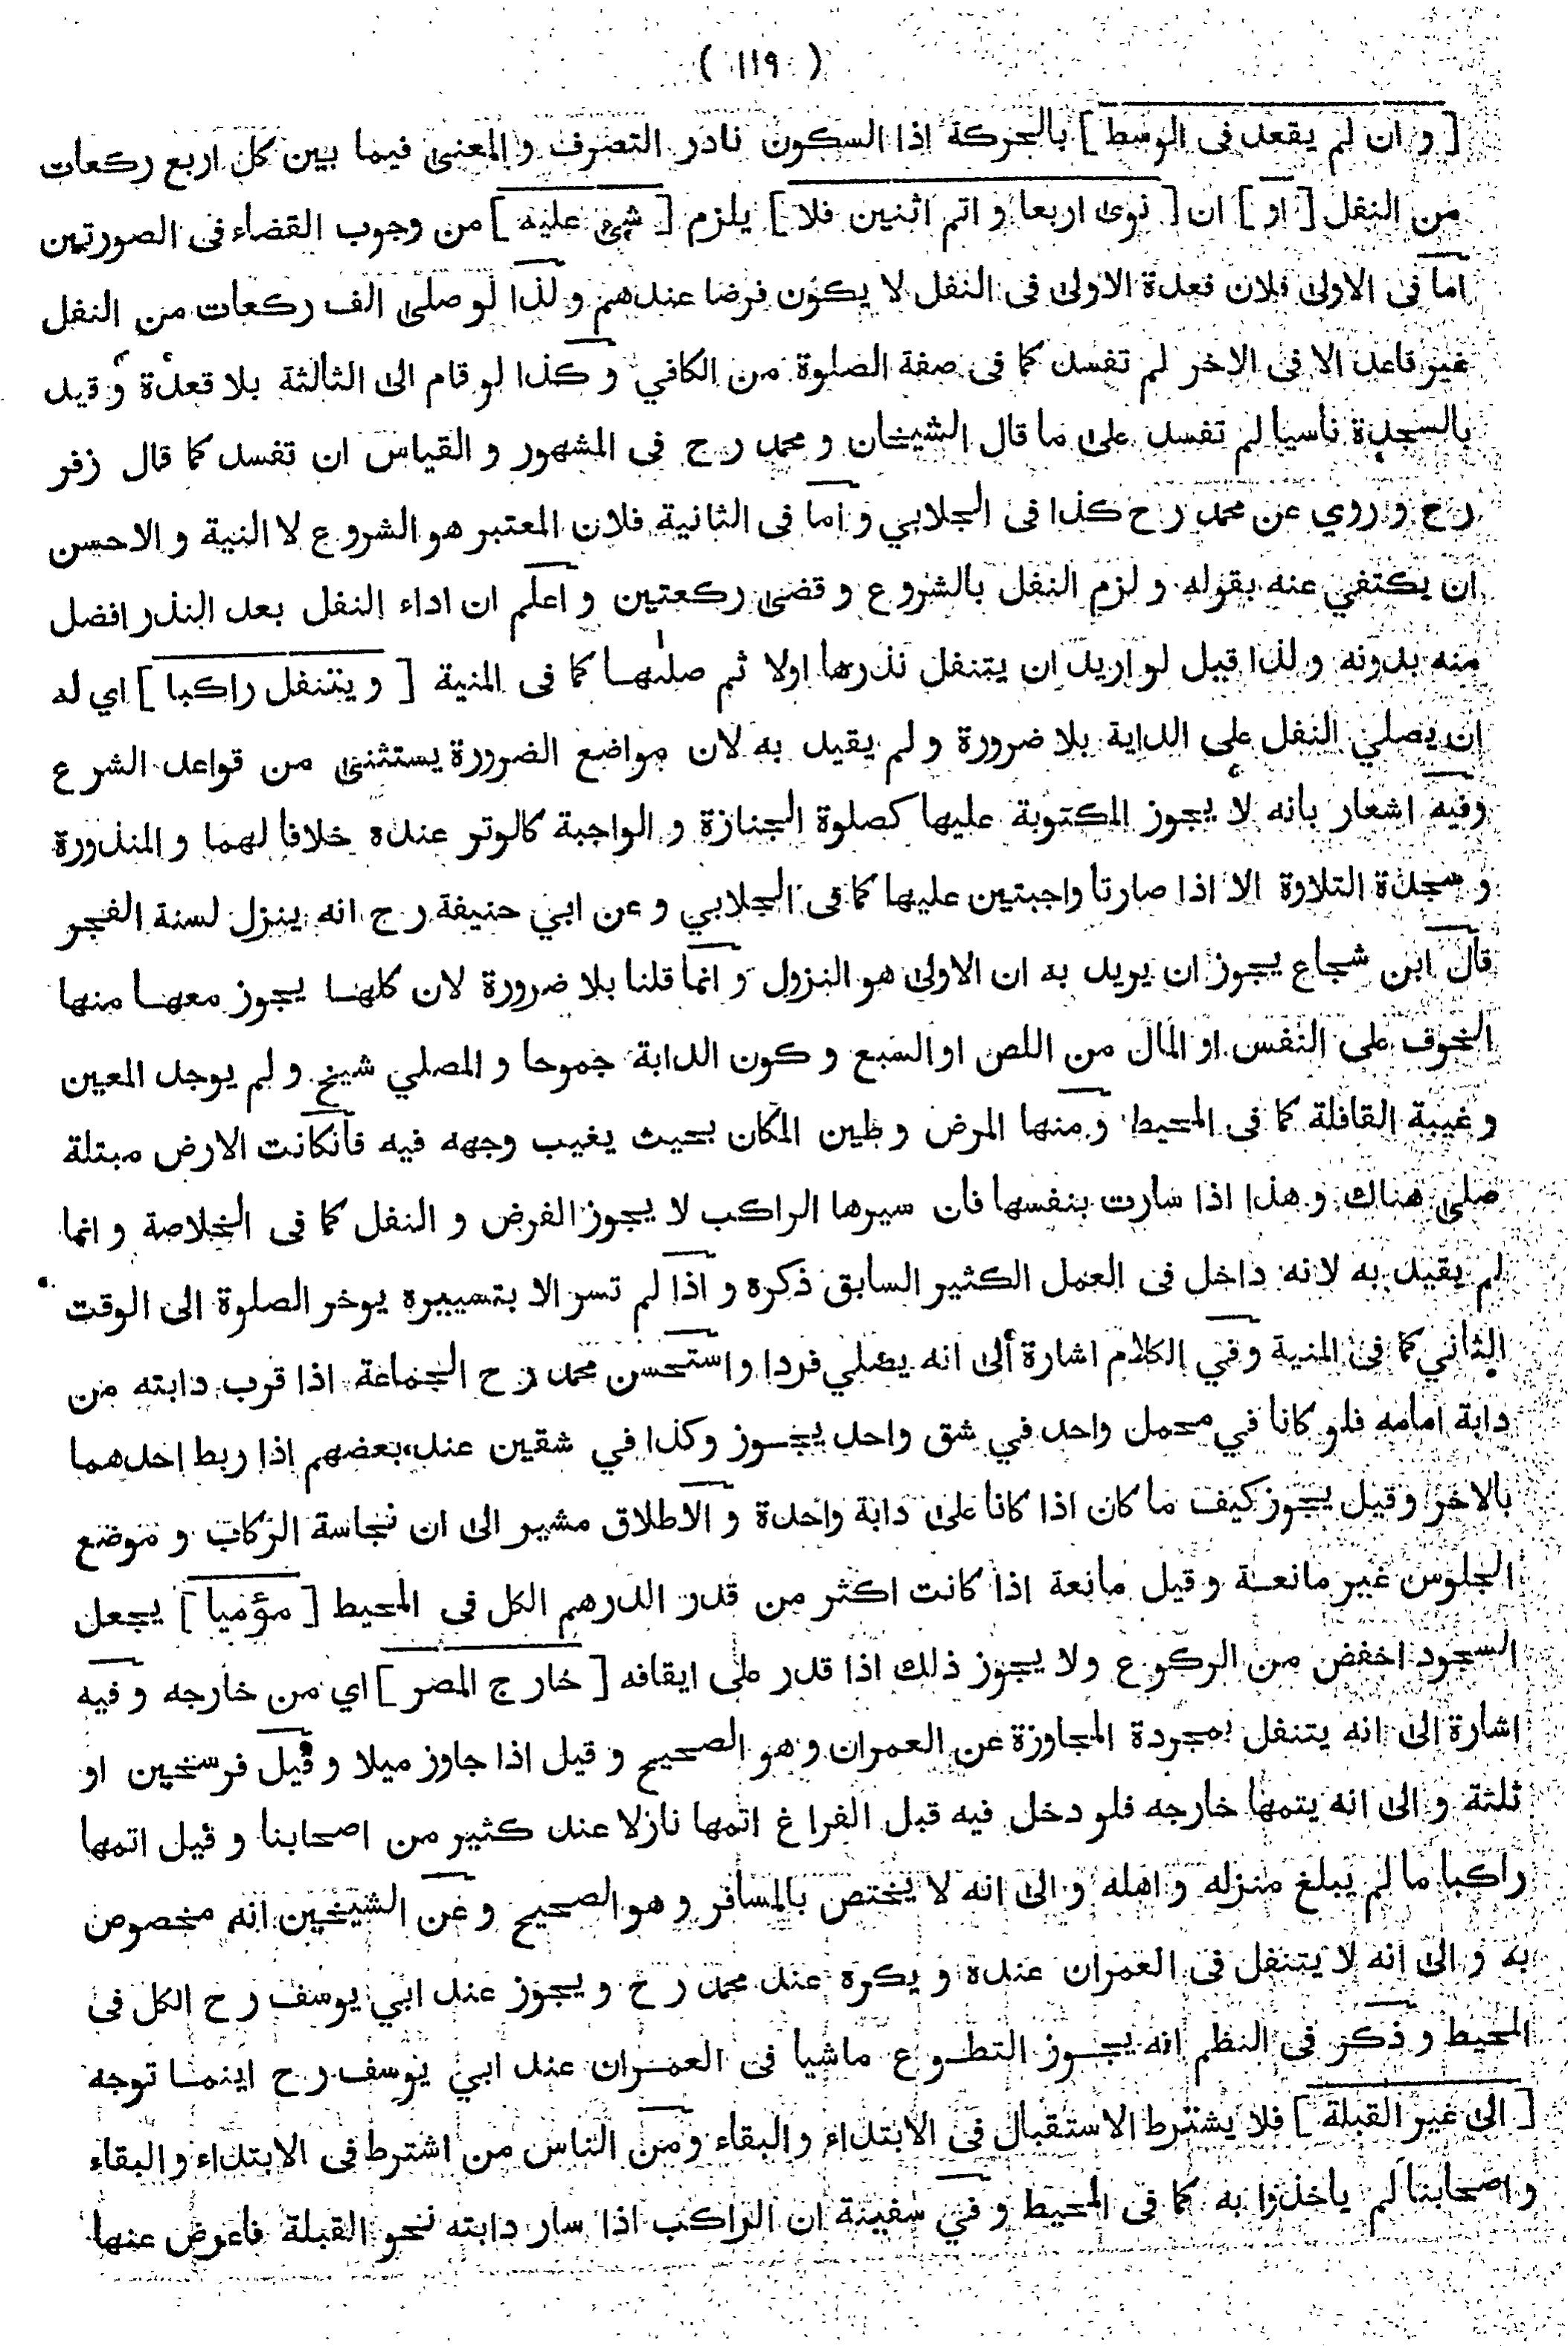 ( ١١٩ )
[ و ان لم يقعد فى الوسط ] بالحركة اذا السكون نادر التصرف و المعنى فيما بين كل اربع ركعات
من النفل [ او ] ان [ نوى اربعا و اتم اثنين فلا ] يلزم [ شىء عليه ] من وجوب القضاء فى الصورتين
اما فى الاولى فلان قعدة الاولى فى النفل لا يكون فرضا عندهم و لذا لو صلى الف ركعات من النفل
غير قاعد الا فى الاخر لم تفسد كما فى صفة الصلوة من الكافي و كذا لو قام الى الثالثة بلا قعدة و قيد
بالسجدة ناسيا لم تفسد على ما قال الشيخان و محمد رح فى المشهور و القياس ان تفسد كما قال زفر
رح و روي عن محمد رح كذا فى الجلابي و اما فى الثانية فلان المعتبر هو الشروع لا النية و الاحسن
ان يكتفي عنه بقوله و لزم النفل بالشروع و قضى ركعتين و اعلم ان اداء النفل بعد النذر افضل
منه بدونه و لذا قيل لو اريد ان يتنفل نذرها اولا ثم صلىها كما فى المنية [ و يتنفل راكبا ] اي له
ان يصلي النفل على الداية بلا ضرورة و لم يقيد به لان مواضع الضرورة يستثنى من قواعد الشرع
وفيه اشعار بانه لا يجوز المكتوبة عليها كصلوة الجنازة و الواجبة كالوتر عنده خلافا لهما و المنذورة
و سجدة التلاوة الا اذا صارتا واجبتين عليها كما فى الجلابي و عن ابي حنيفة رح انه ينزل لسنة الفجر
قال ابن شجاع يجوز ان يريد به ان الاولى هو النزول و انما قلنا بلا ضرورة لان كلها يجوز معها منها
الخوف على النفس او المال من اللص او السبع و كون الدابة جموحا و المصلي شيخ و لم يوجد المعين
و غيبة القافلة كما فى المحيط و منها المرض و طين المكان بحيث يغيب وجهه فيه فانكانت الارض مبتلة
صلى هناك و هذا اذا سارت بنفسها فان سيرها الراكب لا يجوز الفرض و النفل كما فى الخلاصة و انما
لم يقيد به لانه داخل فى العمل الكثير السابق ذكره و اذا لم تسر الا بتسييره يوخر الصلوة الى الوقت
الثاني كما فى المنية وفي الكلام اشارة الى انه يصلي فردا و استحسن محمد رح الجماعة اذا قرب دابته من
دابة امامه فلو كانا في محمل واحد في شق واحد يجوز وكذا في شقين عند بعضهم اذا ربط احدهما
بالاخر و قيل يجوز كيف ما كان اذا كانا على دابة واحدة و الاطلاق مشير الى ان نجاسة الركاب و موضع
الجلوس غير مانعة و قيل مانعة اذا كانت اكثر من قدر الدرهم الكل فى المحيط [ مؤميا ] يجعل
السجود اخفض من الركوع ولا يجوز ذلك اذا قدر على ايقافه [ خارج المصر ] اي من خارجه و فيه
اشارة الى انه يتنفل بمجردة المجاوزة عن العمران و هو الصحيح و قيل اذا جاوز ميلا و قيل فرسخين او
ثلثة و الى انه يتمها خارجه فلو دخل فيه قبل الفراغ اتمها نازلا عند كثير من اصحابنا و قيل اتمها
راكبا ما لم يبلغ منزله و اهله و الى انه لا يختص بالمسافر و هو الصحيح و عن الشيخين انه مخصوص
به و الى انه لا يتنفل فى العمران عنده و يكره عند محمد رح و يجوز عند ابي يوسف رح الكل فى
المحيط و ذكر فى النظم انه يجوز التطوع ماشيا فى العمران عند ابي يوسف رح اينما توجه
[ الى غير القبلة ] فلا يشترط الاستقبال فى الابتداء و البقاء و من الناس من اشترط فى الابتداء و البقاء
و اصحابنا لم ياخذوا به كما فى المحيط و في سفينة ان الراكب اذا سار دابته نحو القبلة فاعرض عنها